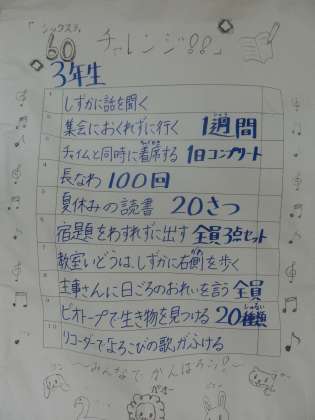 シックスティ
60 チャレンジ!!
3年生
1 しずかに話を聞く
2 集会におくれずに行く 1週間
3 チャイムと同時に着席する 1日コンプリート
4 長なわ 100回
5 夏休みの読書 20さつ
6 宿題をわすれずに出す 全員3点セット
7 教室いどうは、しずかに右側を歩く
8 主事さんに日ごろのおれいを言う 全員
9 ビオトープで生き物を見つける 20種類
10 リコーダーで「よろこびの歌」がふける
〜みんなで がんばろう!〜